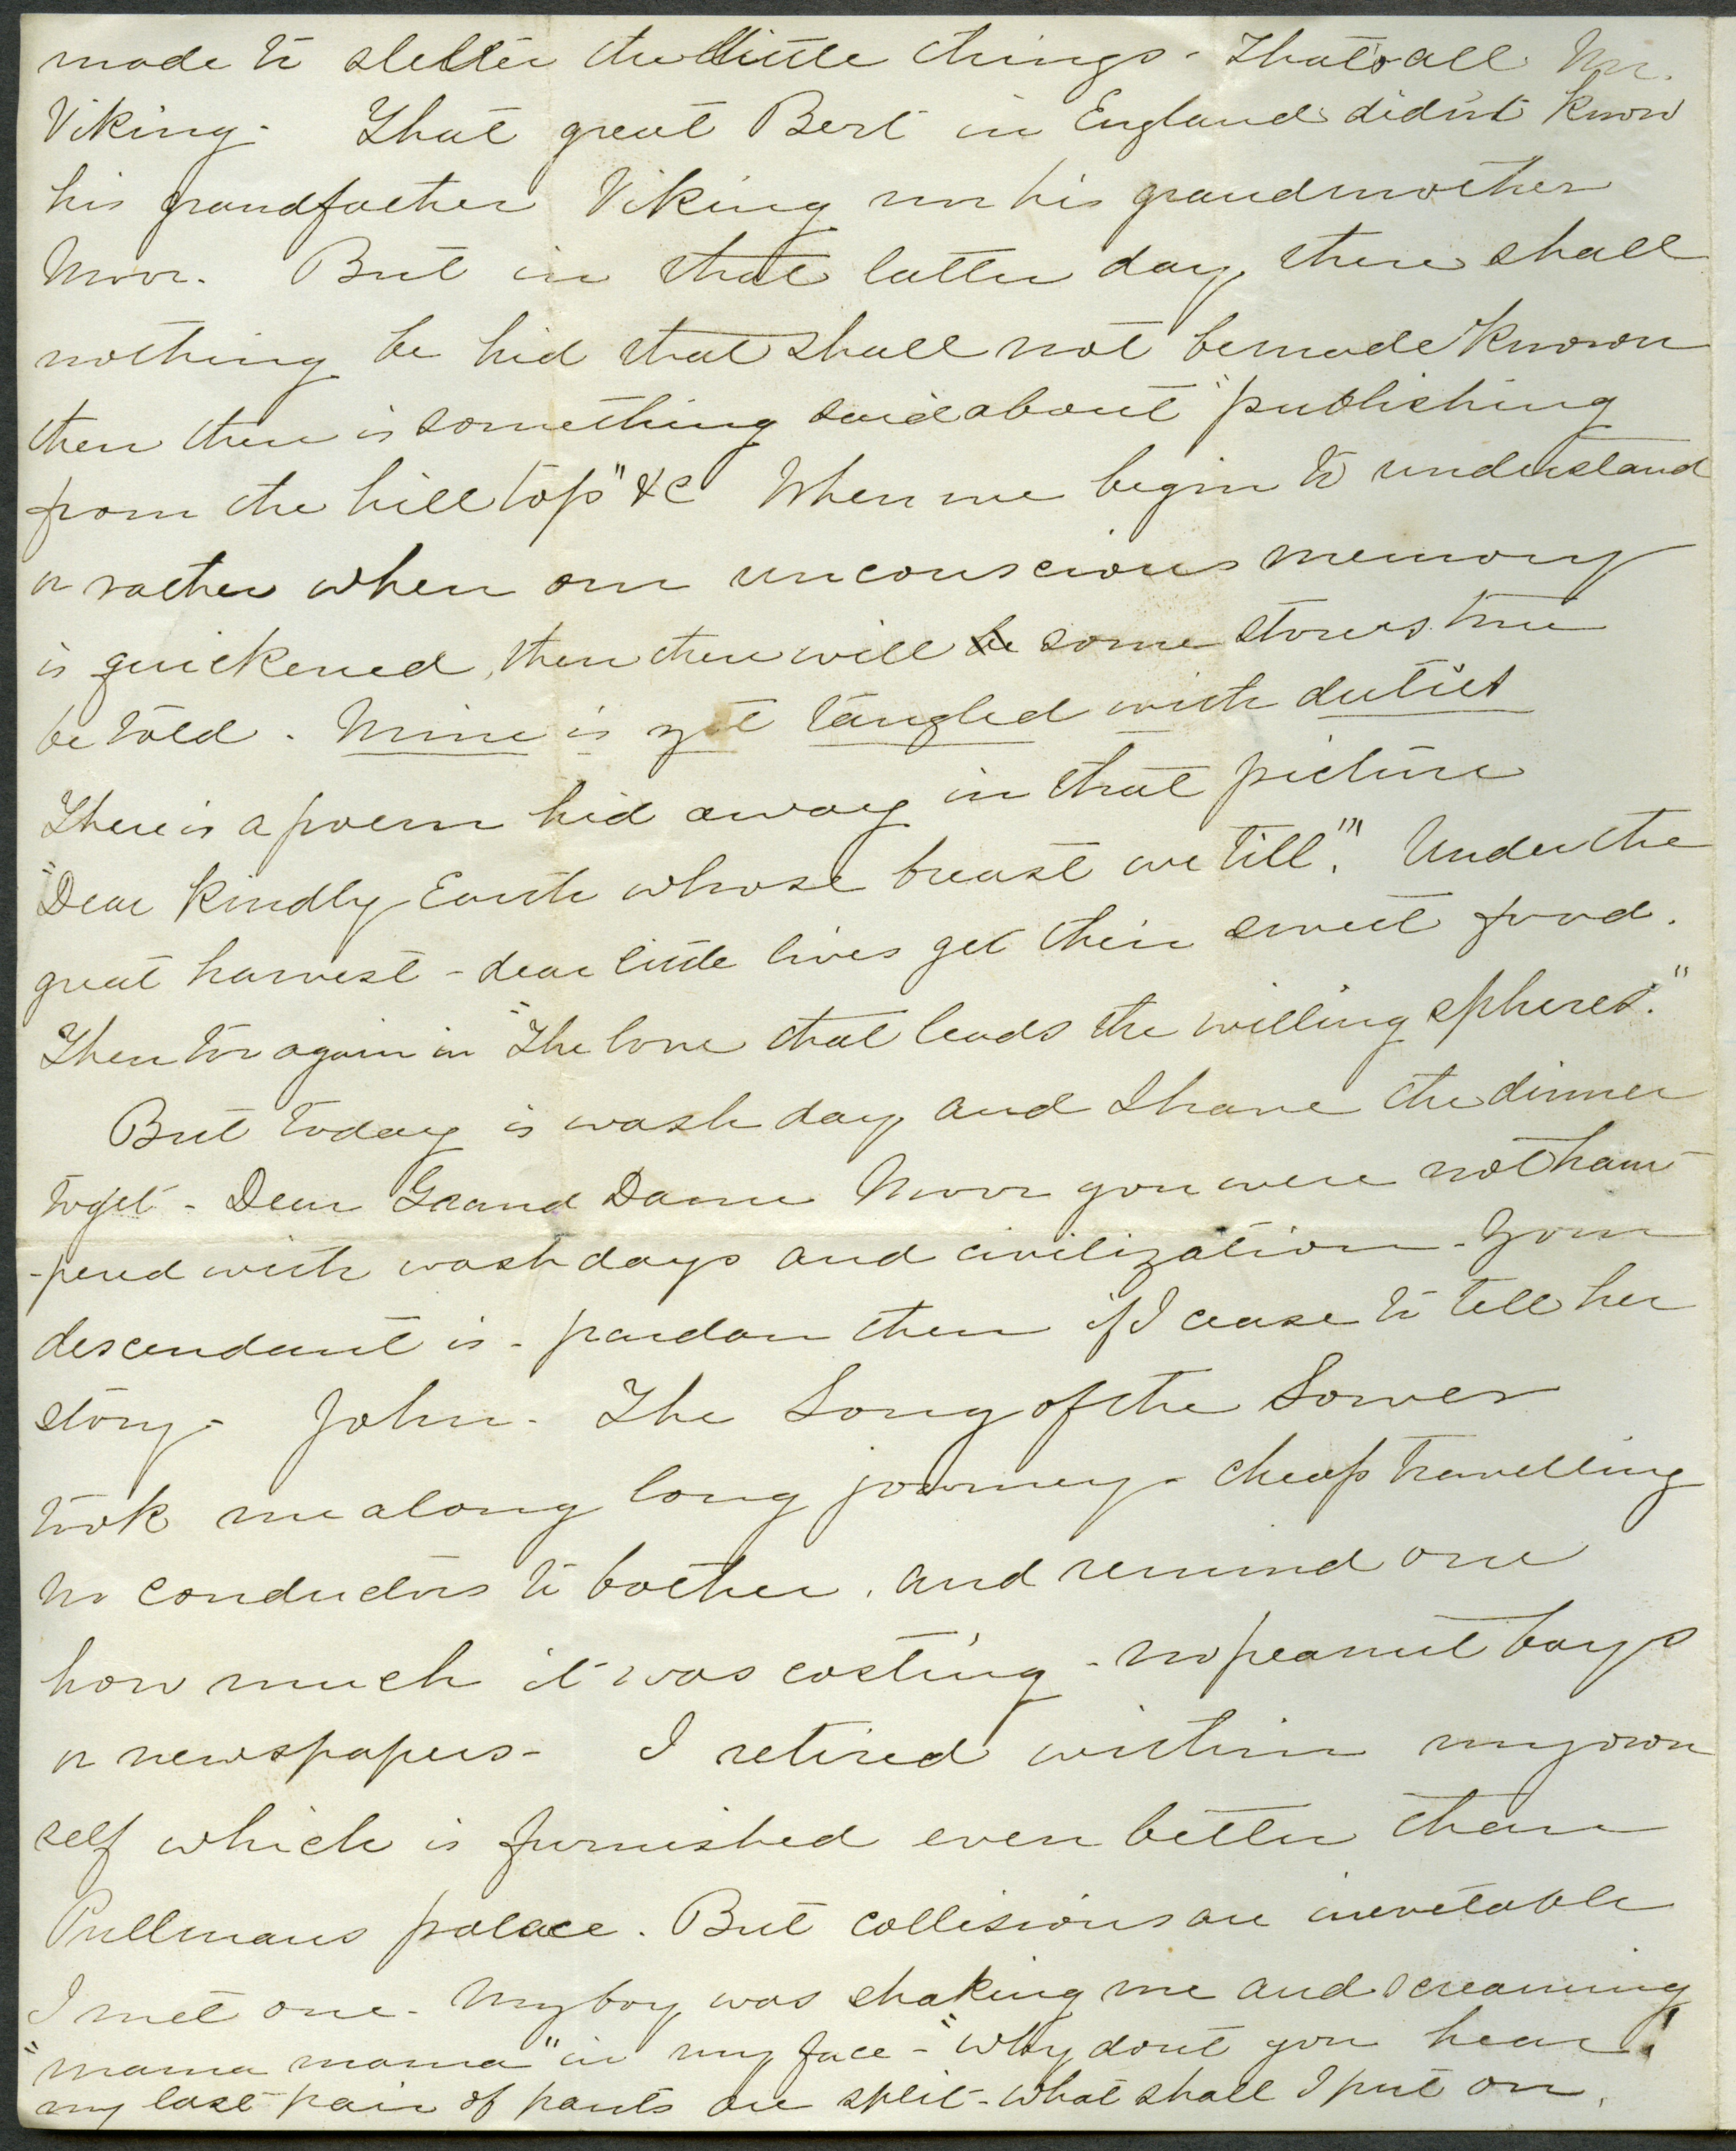 made to shelter the little things - That's all Mr.
Viking - That great Bert in England did'nt know
his grandfather Viking nor his grandmother
Moor. But in that latter day, there shall
nothing be hid that shall not be made known
then there is something said about "publishing
from the hill top" &c When we begin to understand
or rather when our unconscious memory
is quickened, then there will be some stories true
be told. Mine is yet tangled with duties
There is a poem hid away in that picture
"Dear kindly Earth whose breast we till." Under the
great harvest - dear little lives get their sweet food.
Then too again in "The love that leads the willing spheres."
But today is wash day, and I have the dinner
to get - Dear Grand Dame Moor you were not ham-
-pered with wash days and civilization - Your
descendant is - pardon then if I cease to tell her
story - John - The Song of the Sower
took me along long journey - cheap travelling
no conductors to bother, and remind one
how much it was costing - no peanut boys
or newspapers - I retired within my own
self which is furnished even better than
Pullmans palace. But collisions are inevetable
I met one - My boy was shaking me and screaming
"mama mama" in my face - "why dont you hear!
my last pair of pants are split - what shall I put on.